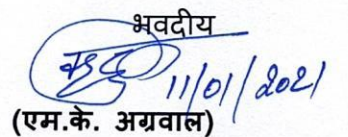 भवदीय
11/01/2021
(एम.के. अग्रवाल)